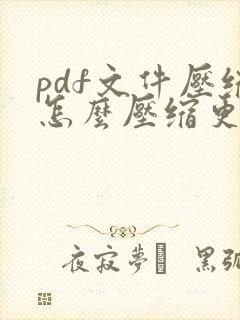 pdf文件壓縮
怎麼壓縮更
夜寂夢 黑弧